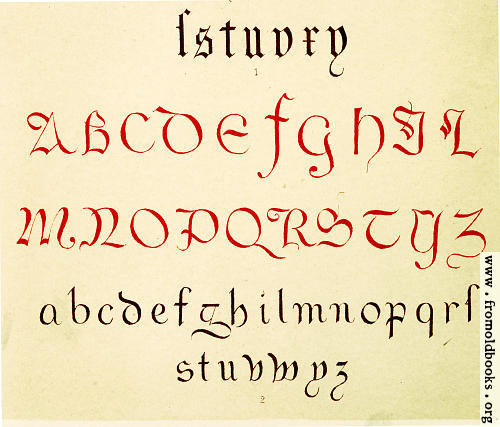 ſstuvxy
1
ABCDEFGHIL
MNOPQRSTYZ
abcdefghilmnopqrſ
stuvwyz
2
www.fromoldbooks.org